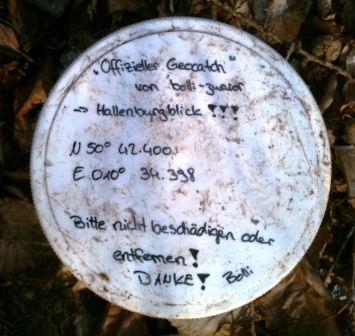 „Offizieller Geocatch"
von bolli-junior
-> Hallenburgblick !!!
N 50° 42.400
E 010° 34.398
Bitte nicht beschädigen oder
entfernen!
DANKE! Bolli